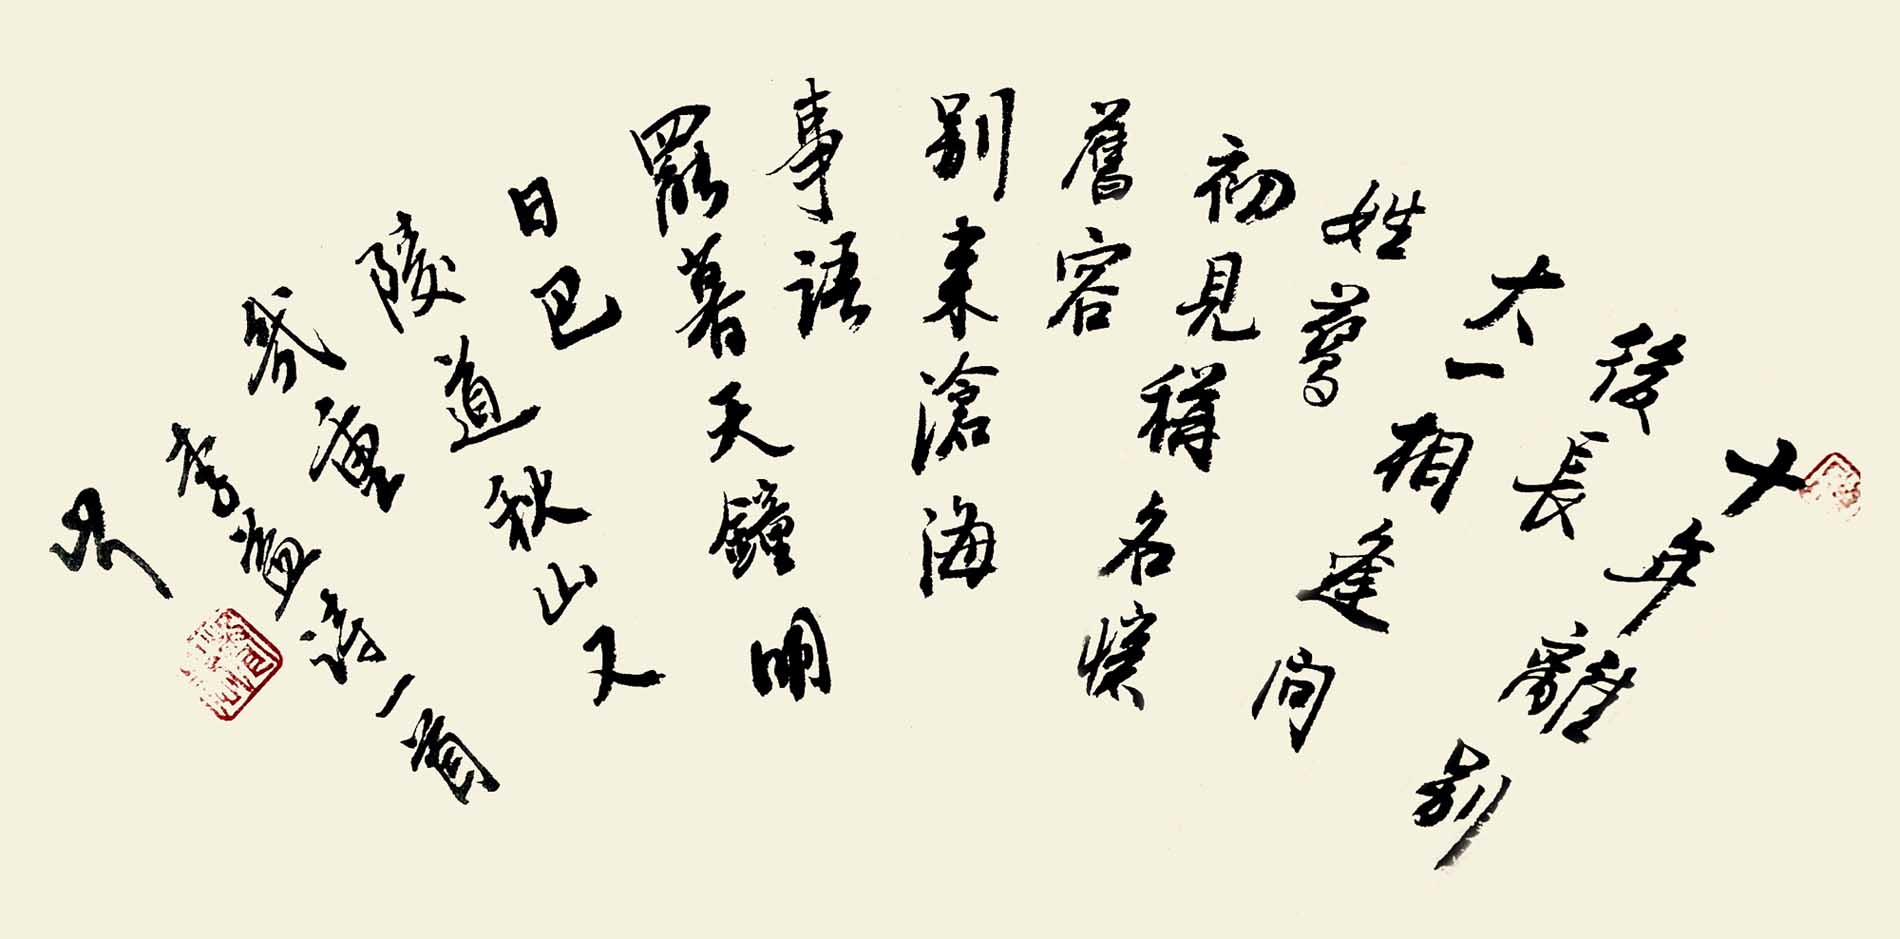 十年離别
後長
大一相逢問
姓驚
初見稱名憶
舊容
别来滄海
事語
罷暮天鐘明
日巴
陵道秋山又
幾重
李益詩一首